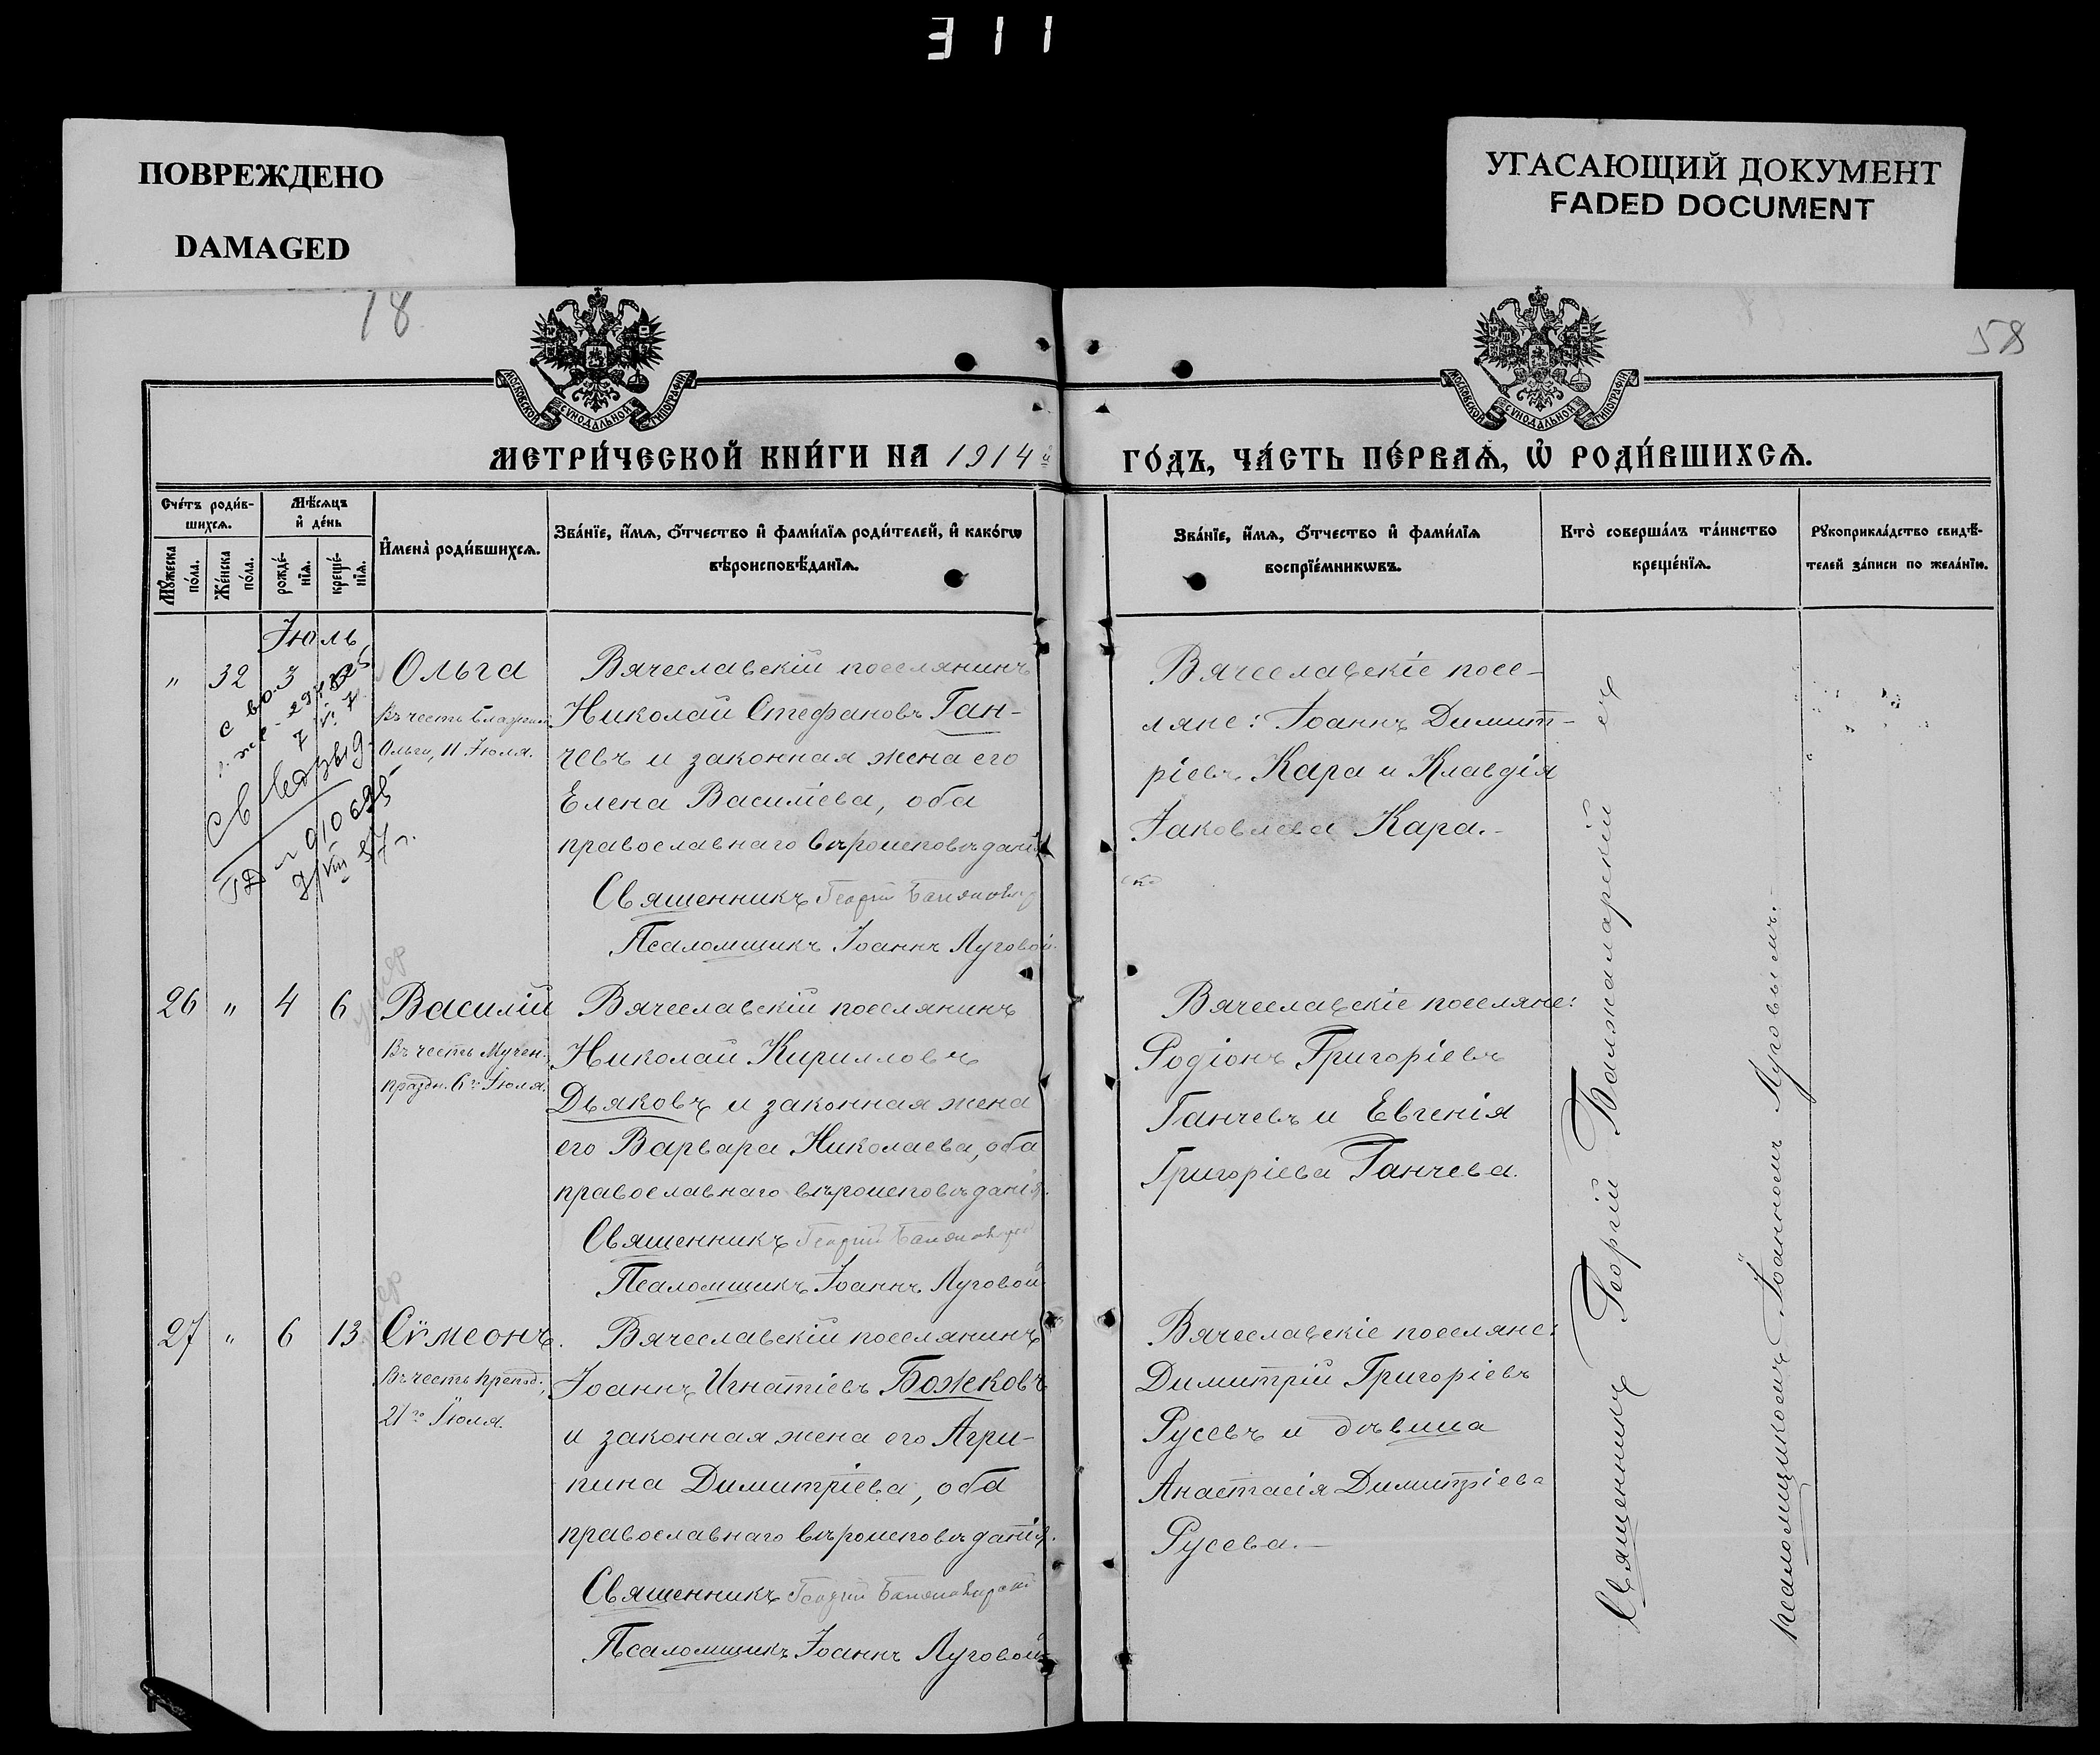 311
ПОВРЕЖДЕНО
DAMAGED
УГАСАЮЩИЙ ДОКУМЕНТ
FADED DOCUMENT
18
58
МОСКОВСКОЙ СѴНОДАЛЬНОЙ ТИПОГРАФІИ
МОСКОВСКОЙ СѴНОДАЛЬНОЙ ТИПОГРАФІИ
МЕТРИ́ЧЕСКОЙ КНИ́ГИ НА 1914й
ГО́ДЪ, ЧА́СТЬ ПЕ́РВАѦ, Ѽ РОДИ́ВШИХСѦ.
Сче́тъ роди́в-
шихсѧ.
Мѣ́сѧцъ
и҆ де́нь
Мꙋ́жеска
по́ла.
Же́нска
по́ла.
рожде́-
нїѧ.
креще́-
нїѧ.
И҆мена̀ роди́вшихсѧ.
Зва́нїе, и҆́мѧ, ѻ҆́тчество и҆ фами́лїѧ роди́телей, и҆ како́гѡ
вѣроисповѣ́данїѧ.
Зва́нїе, и҆́мѧ, ѻ҆́тчество и҆ фами́лїѧ
воспрїе́мникѡвъ.
Кто̀ соверша́лъ та́инство
креще́нїѧ.
Рꙋкоприкла́дство свидѣ́-
телей за́писи по жела́нїю.
Іюль
" 32 3
Ольга
Въ честь Блажен.
Ольги, 11 Іюля.
Вячеславскій поселянинъ
Николай Стефановъ Ган-
чевъ и законная жена его
Елена Василіева, оба
православнаго вѣроисповѣданія
Священникъ Георгій
Псаломщикъ Іоаннъ Луговой.
Вячеславскіе посе-
ляне: Іоаннъ Димит-
ріевъ Кара и Клавдія
Іаковлева Кара.-
26 " 4 6
Василій
Въ честь Мучен.
праздн. 6го Іюля.
Вячеславскій поселянинъ
Николай Кирилловъ
Дьяковъ и законная жена
его Варвара Николаева, оба
православнаго вѣроисповѣданія.
Священникъ Георгій
Псаломщикъ Іоаннъ Луговой
Вячеславскіе поселяне:
Родіонъ Григоріевъ
Ганчевъ и Евгенія
Григоріева Ганчева.
27 " 6 13
Сѵмеонъ.
Въ честь Препод.,
21го Іюля.
Вячеславскій поселянинъ
Іоаннъ Игнатіевъ Божековъ
и законная жена его Агри-
пина Димитріева, оба
православнаго вѣроисповѣданія.
Священникъ Георгій
Псаломщикъ Іоаннъ Луговой
Вячеславскіе поселяне:
Димитрій Григоріевъ
Русевъ и дѣвица
Анастасія Димитріева
Русева.-
Священникъ Георгій съ
псаломщикомъ Іоанномъ Луговымъ.